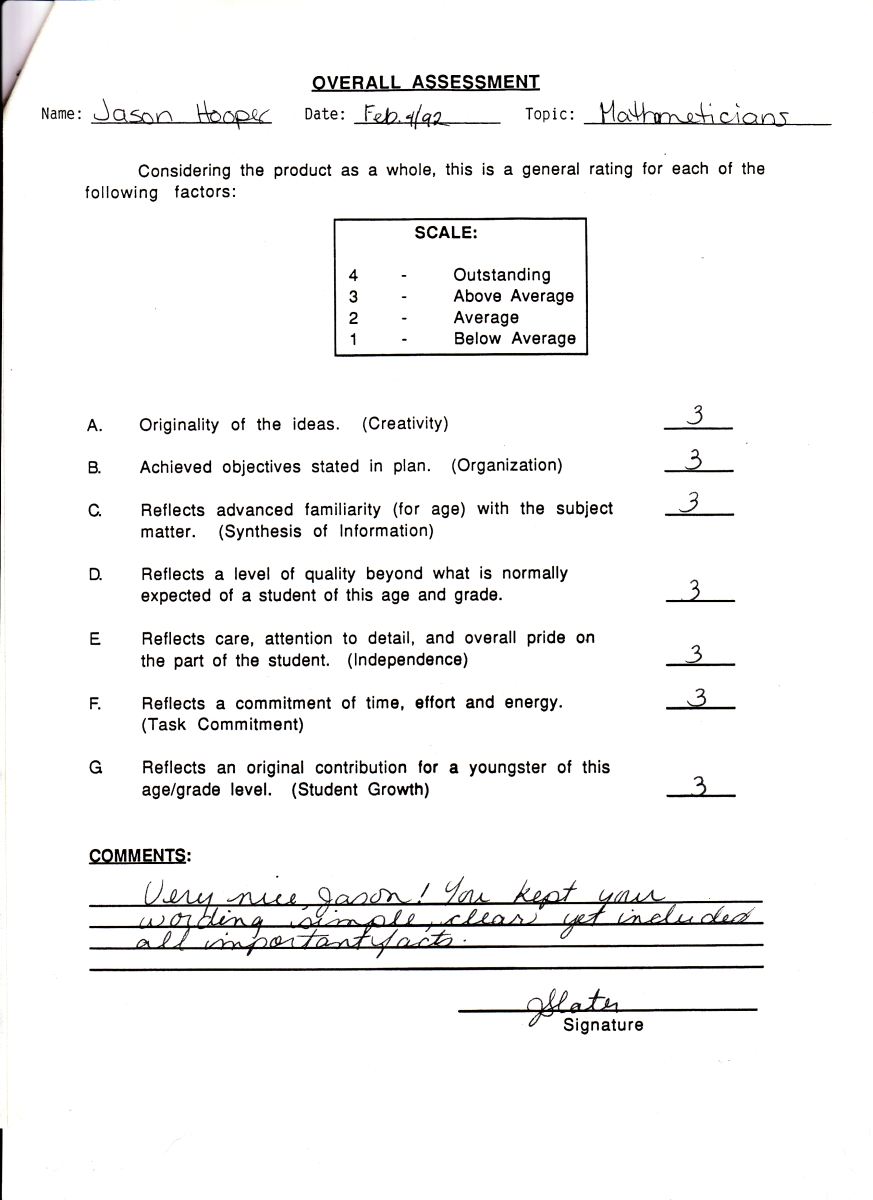 OVERALL ASSESSMENT
Name: Jason Hooper Date: Feb. 4/92 Topic: Mathmeticians
Considering the product as a whole, this is a general rating for each of the
following factors:
SCALE:
4 - Outstanding
3 - Above Average
2 - Average
1 - Below Average
A. Originality of the ideas. (Creativity) 3
B. Achieved objectives stated in plan. (Organization) 3
C. Reflects advanced familiarity (for age) with the subject 3
matter. (Synthesis of Information)
D. Reflects a level of quality beyond what is normally
expected of a student of this age and grade. 3
E Reflects care, attention to detail, and overall pride on
the part of the student. (Independence) 3
F. Reflects a commitment of time, effort and energy. 3
(Task Commitment)
G Reflects an original contribution for a youngster of this
age/grade level. (Student Growth) 3
COMMENTS:
Very nice, Jason! You kept your
wording simple, clear yet included
all important facts.
JSlater
Signature